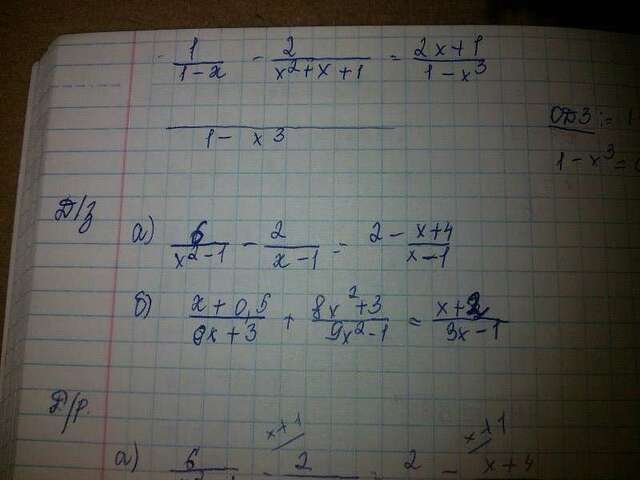 1/(1-x) - 2/(x²+x+1) = (2x+1)/(1-x³)
1 - x³
ОДЗ:
1-x³=
Д/з
а) 6/(x²-1) - 2/(x-1) = 2 - (x+4)/(x-1)
б) (x+0,5)/(9x+3) + (8x²+3)/(9x²-1) = (x+2)/(3x-1)
Д/р.
x+1 x+1
а) 6 - 2 = 2 - x+4